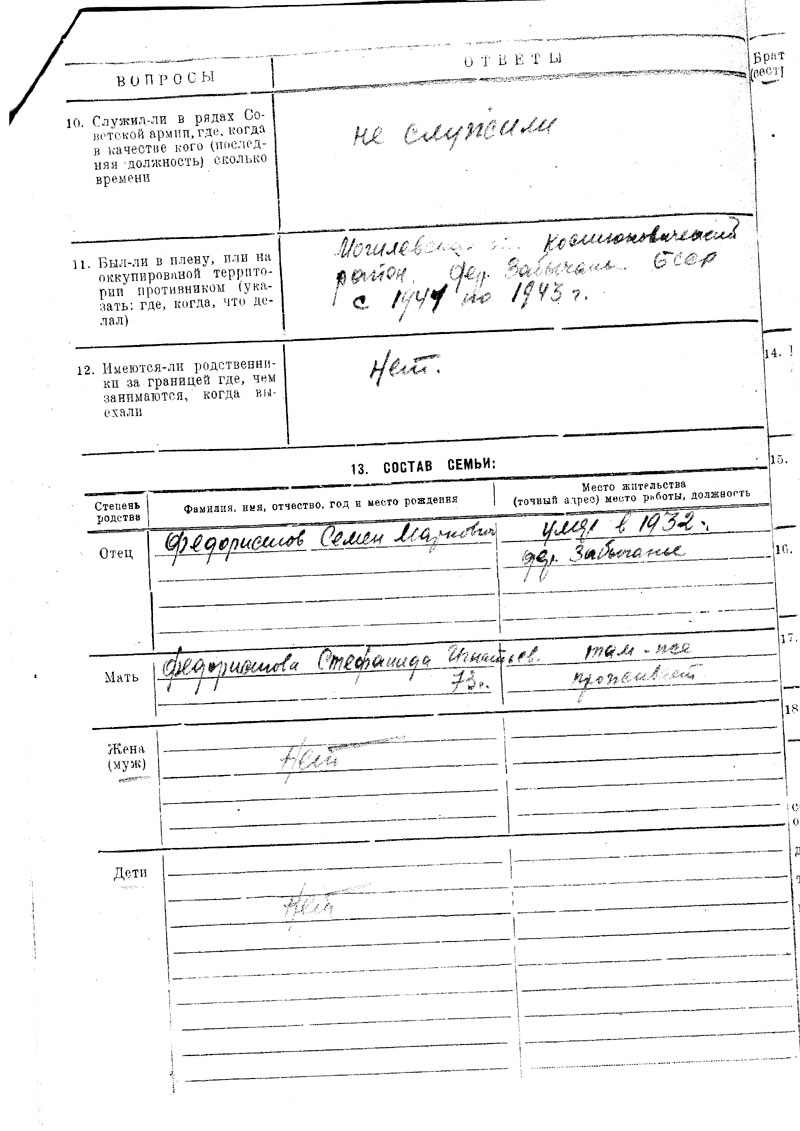 ВОПРОСЫ
ОТВЕТЫ
10. Служил-ли в рядах Со-
ветской армии, где, когда
в качестве кого (послед-
няя должность) сколько
времени
не служили
11. Был-ли в плену, или на
оккупированой террито-
рии противником (ука-
зать: где, когда, что де-
лал)
район, дер. Забычанье БССР
с 1941 по 1943 г.
12. Имеются-ли родственни-
ки за границей где, чем
занимаются, когда вы-
ехали
Нет.
13. СОСТАВ СЕМЬИ:
Степень
родства
Фамилия, имя, отчество, год и место рождения
Место жительства
(точный адрес) место работы, должность
Отец
Федористов Семен Маркович
умер в 1932 г.
дер. Забычанье
Мать
Федористова Стефанида Игнатьев.
73 г.
там-же
проживает
Жена
(муж)
Нет
Дети
Нет
Брат
(сест
14.
15.
16.
17.
18